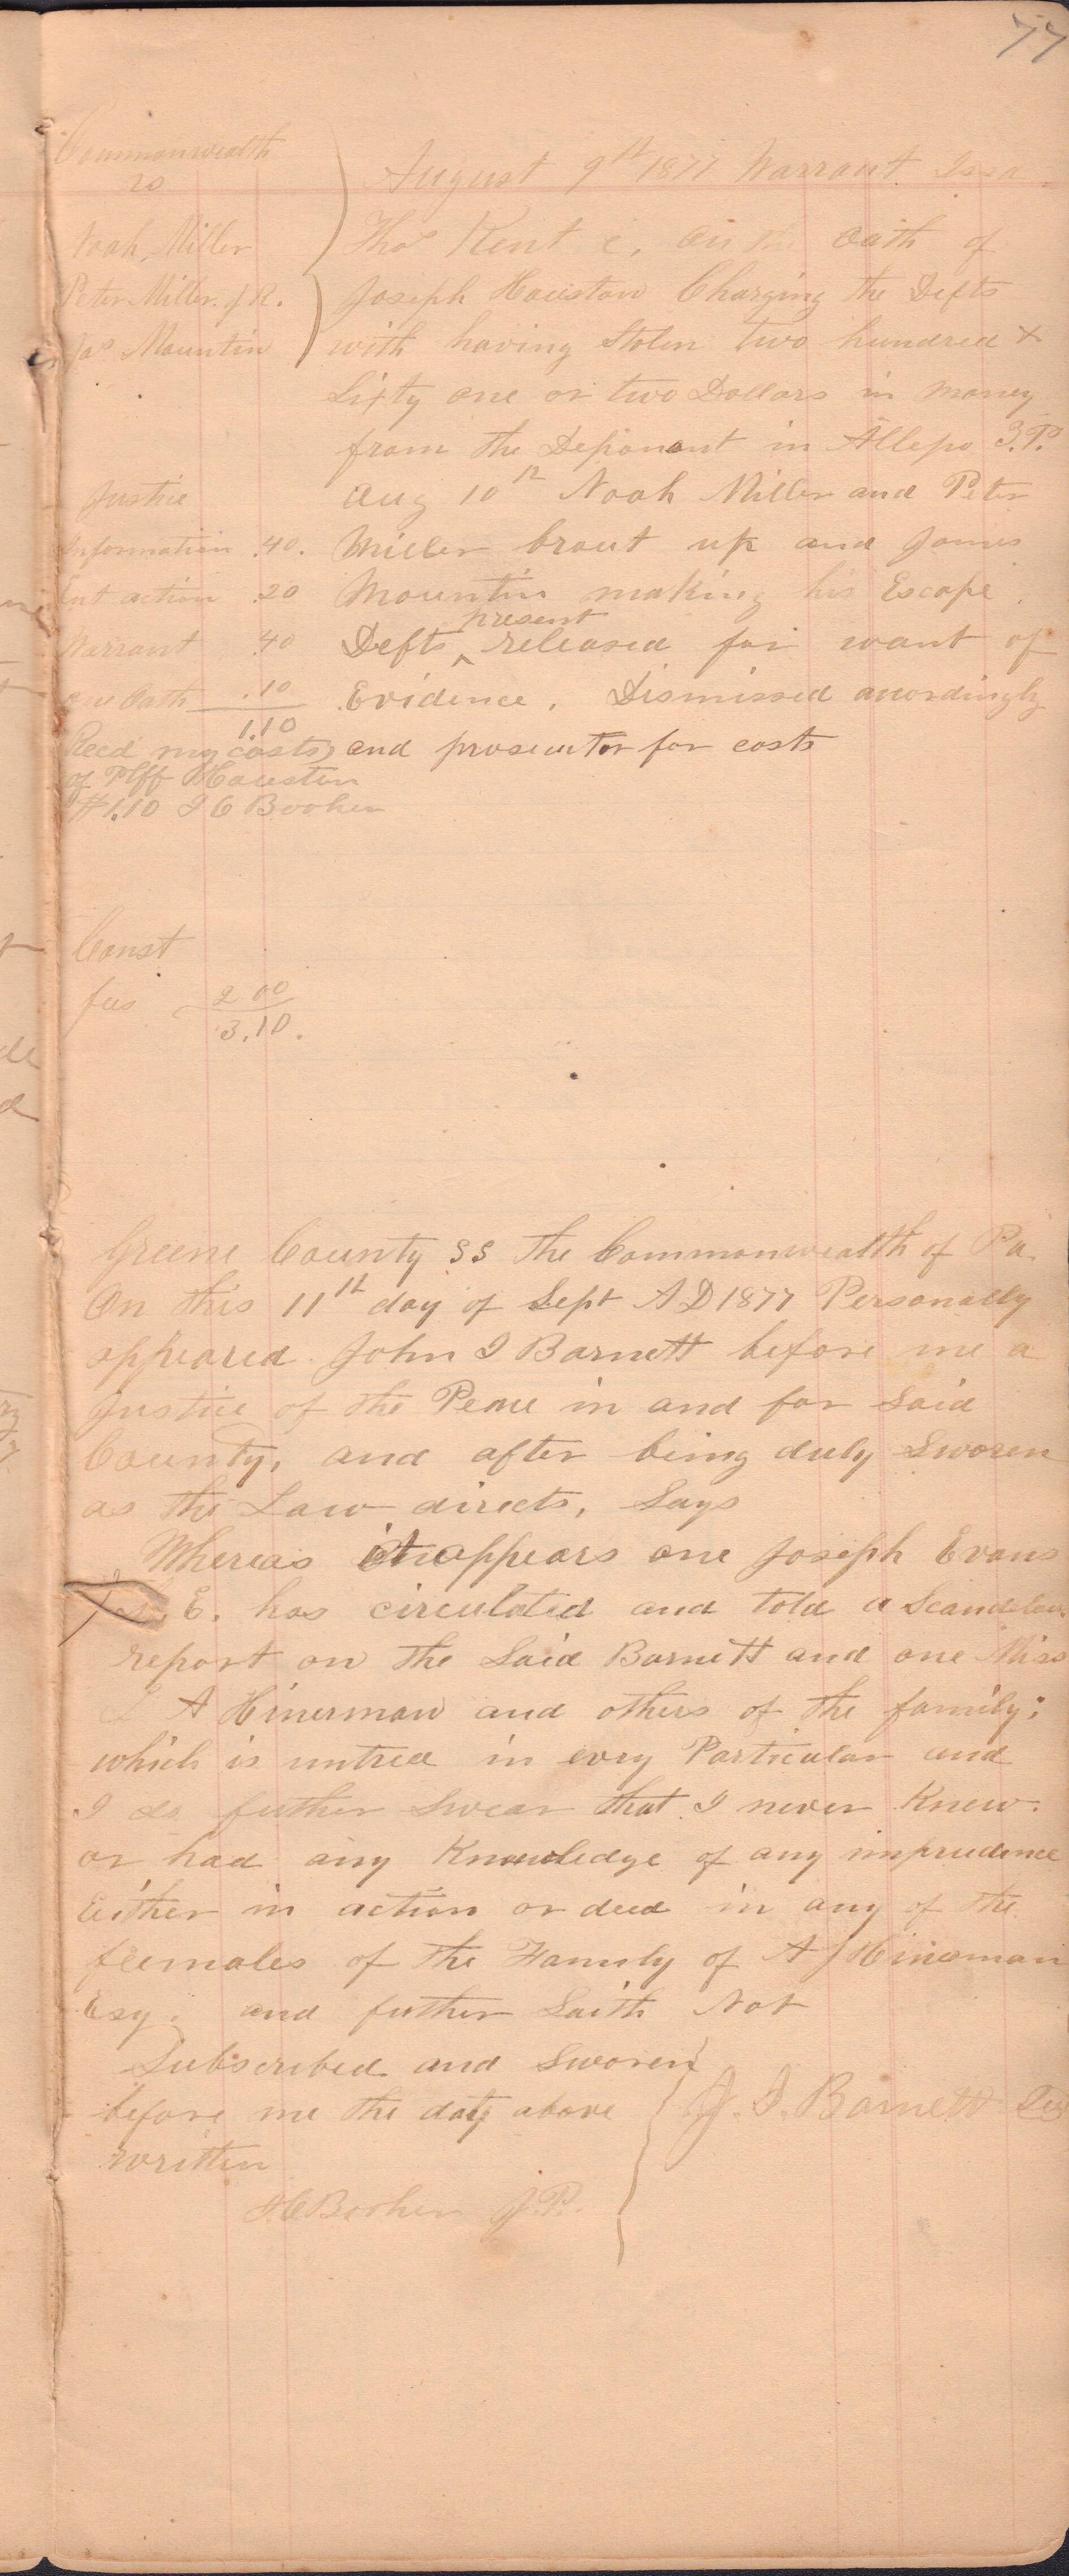 77
Commonwealth
vs
Noah Miller
Peter Miller J R.
Jas Mountin
August 9th 1877 Warrant Issd
Thos Kent c, on the oath of
Joseph Houston Charging the Defts
with having Stolen two hundred &
Sixty one or two Dollars in money
from the Deponent in Allepo T.P.
Aug 10th Noah Miller and Peter
Miller brout up and James
Mountin making his Escape.
Defts present released for want of
Evidence. Dismissed acordingly
and prosecutor for costs
Justice
Information .40.
Ent action .20
Warrant .40
one Oath .10
1.10
Recd my costs
of Plff Houston
$1.10 I C Booher
Const
fees 2 00
3.10.
Greene County SS The Commonwealth of Pa.
On this 11th day of Sept A D 1877 Personally
appeared John I Barnett before me a
Justice of the Peace in and for Said
County, and after being duly Sworen
as the Law directs, Says
Whereas it appears one Joseph Evans
E. has circulated and told a Scandelous
report on the Said Barnett and one Miss
A Hinerman and others of the family;
which is untrue in evry Particular and
I do further Swear that I never Knew.
or had any Knowledge of any imprudence
Either in action or deed in any of the
feemales of the Family of A J Hinerman
Esq. and futher Saith Not
Subscribed and Sworen
before me the day above
written
J. I. Barnett
I C Booher J.P.